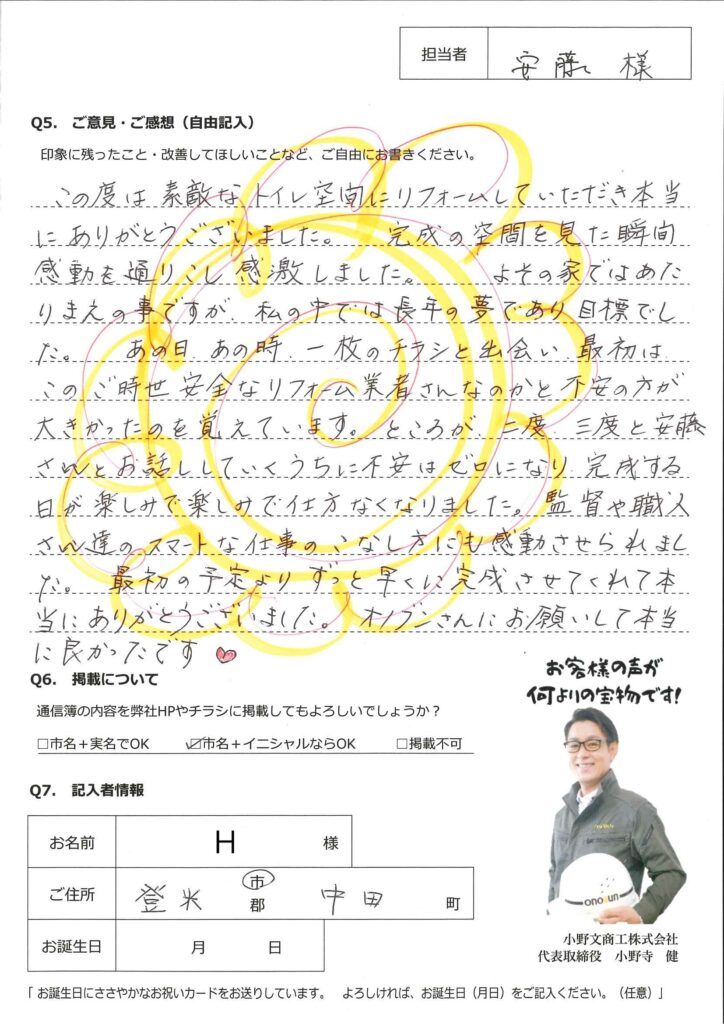 担当者 安藤 様
Q5. ご意見・ご感想（自由記入）
印象に残ったこと・改善してほしいことなど、ご自由にお書きください。
この度は素敵なトイレ空間にリフォームしていただき本当
にありがとうございました。 完成の空間を見た瞬間
感動を通りこし感激しました。 よその家ではあた
りまえの事ですが、私の中では長年の夢であり目標でし
た。 あの日あの時、一枚のチラシと出会い最初は
このご時世安全なリフォーム業者さんなのかと不安の方が
大きかったのを覚えています。ところが二度三度と安藤
さんとお話ししていくうちに不安はゼロになり完成する
日が楽しみで楽しみで仕方なくなりました。監督や職人
さん達のスマートな仕事のこなし方にも感動させられまし
た。 最初の予定よりずっと早くに完成させてくれて本
当にありがとうございました。オノブンさんにお願いして本当
に良かったです
お客様の声が
何よりの宝物です!
Q6. 掲載について
通信簿の内容を弊社HPやチラシに掲載してもよろしいでしょうか？
□市名＋実名でOK ☑市名＋イニシャルならOK □掲載不可
Q7. 記入者情報
お名前 H 様
ご住所 登米 市 郡 中田 町
お誕生日 月 日
onobun
小野文商工株式会社
代表取締役 小野寺 健
「 お誕生日にささやかなお祝いカードをお送りしています。 よろしければ、お誕生日（月日）をご記入ください。（任意）」